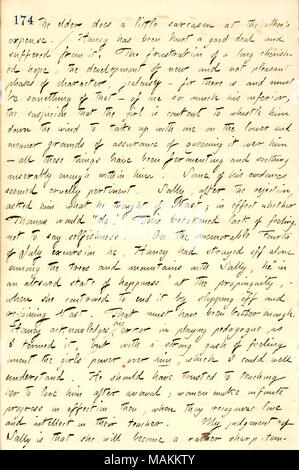 174
The elder does a little sarcasm at the other's
expense. Haney has been hurt a good deal and
suffered from it. The frustration of a long cherished
hope, the development of new and not pleasant
phases of character, jealousy — for there is and must
be something of that — of one so much his inferior,
the suspicion that the girl is content to whistle him
down the wind to take up with one on the lower and
meaner grounds of assurance of queening it over him
— all these things have been fermenting and seething
miserably enough within him. Some of his evidences
seemed cruelly pertinent. Sally, after the rejection
asked him what he thought of Nast; in effect whether
Thomas would "do." This betokened lack of feeling,
not to say selfishness. On the memorable Fourth
of July excursion he, Haney had strayed off alone
among the trees and mountains with Sally, he in
an absurd state of happiness at the propinquity,
when she contrived to end it by slipping off and
rejoining Nast. That must have been bitter enough.
Haney acknowledges one error in playing pedagogue, as
I termed it, but with a strong gush of feeling
anent the girls power over him, which I could well
understand. He should have trusted to teaching
her to love him after avowal; women make infinite
progress in affection then, when they recognize love
and intellect in their teacher. My judgment of
Sally is that she will become a rather sharp-tem-
alamy
MAKKTY